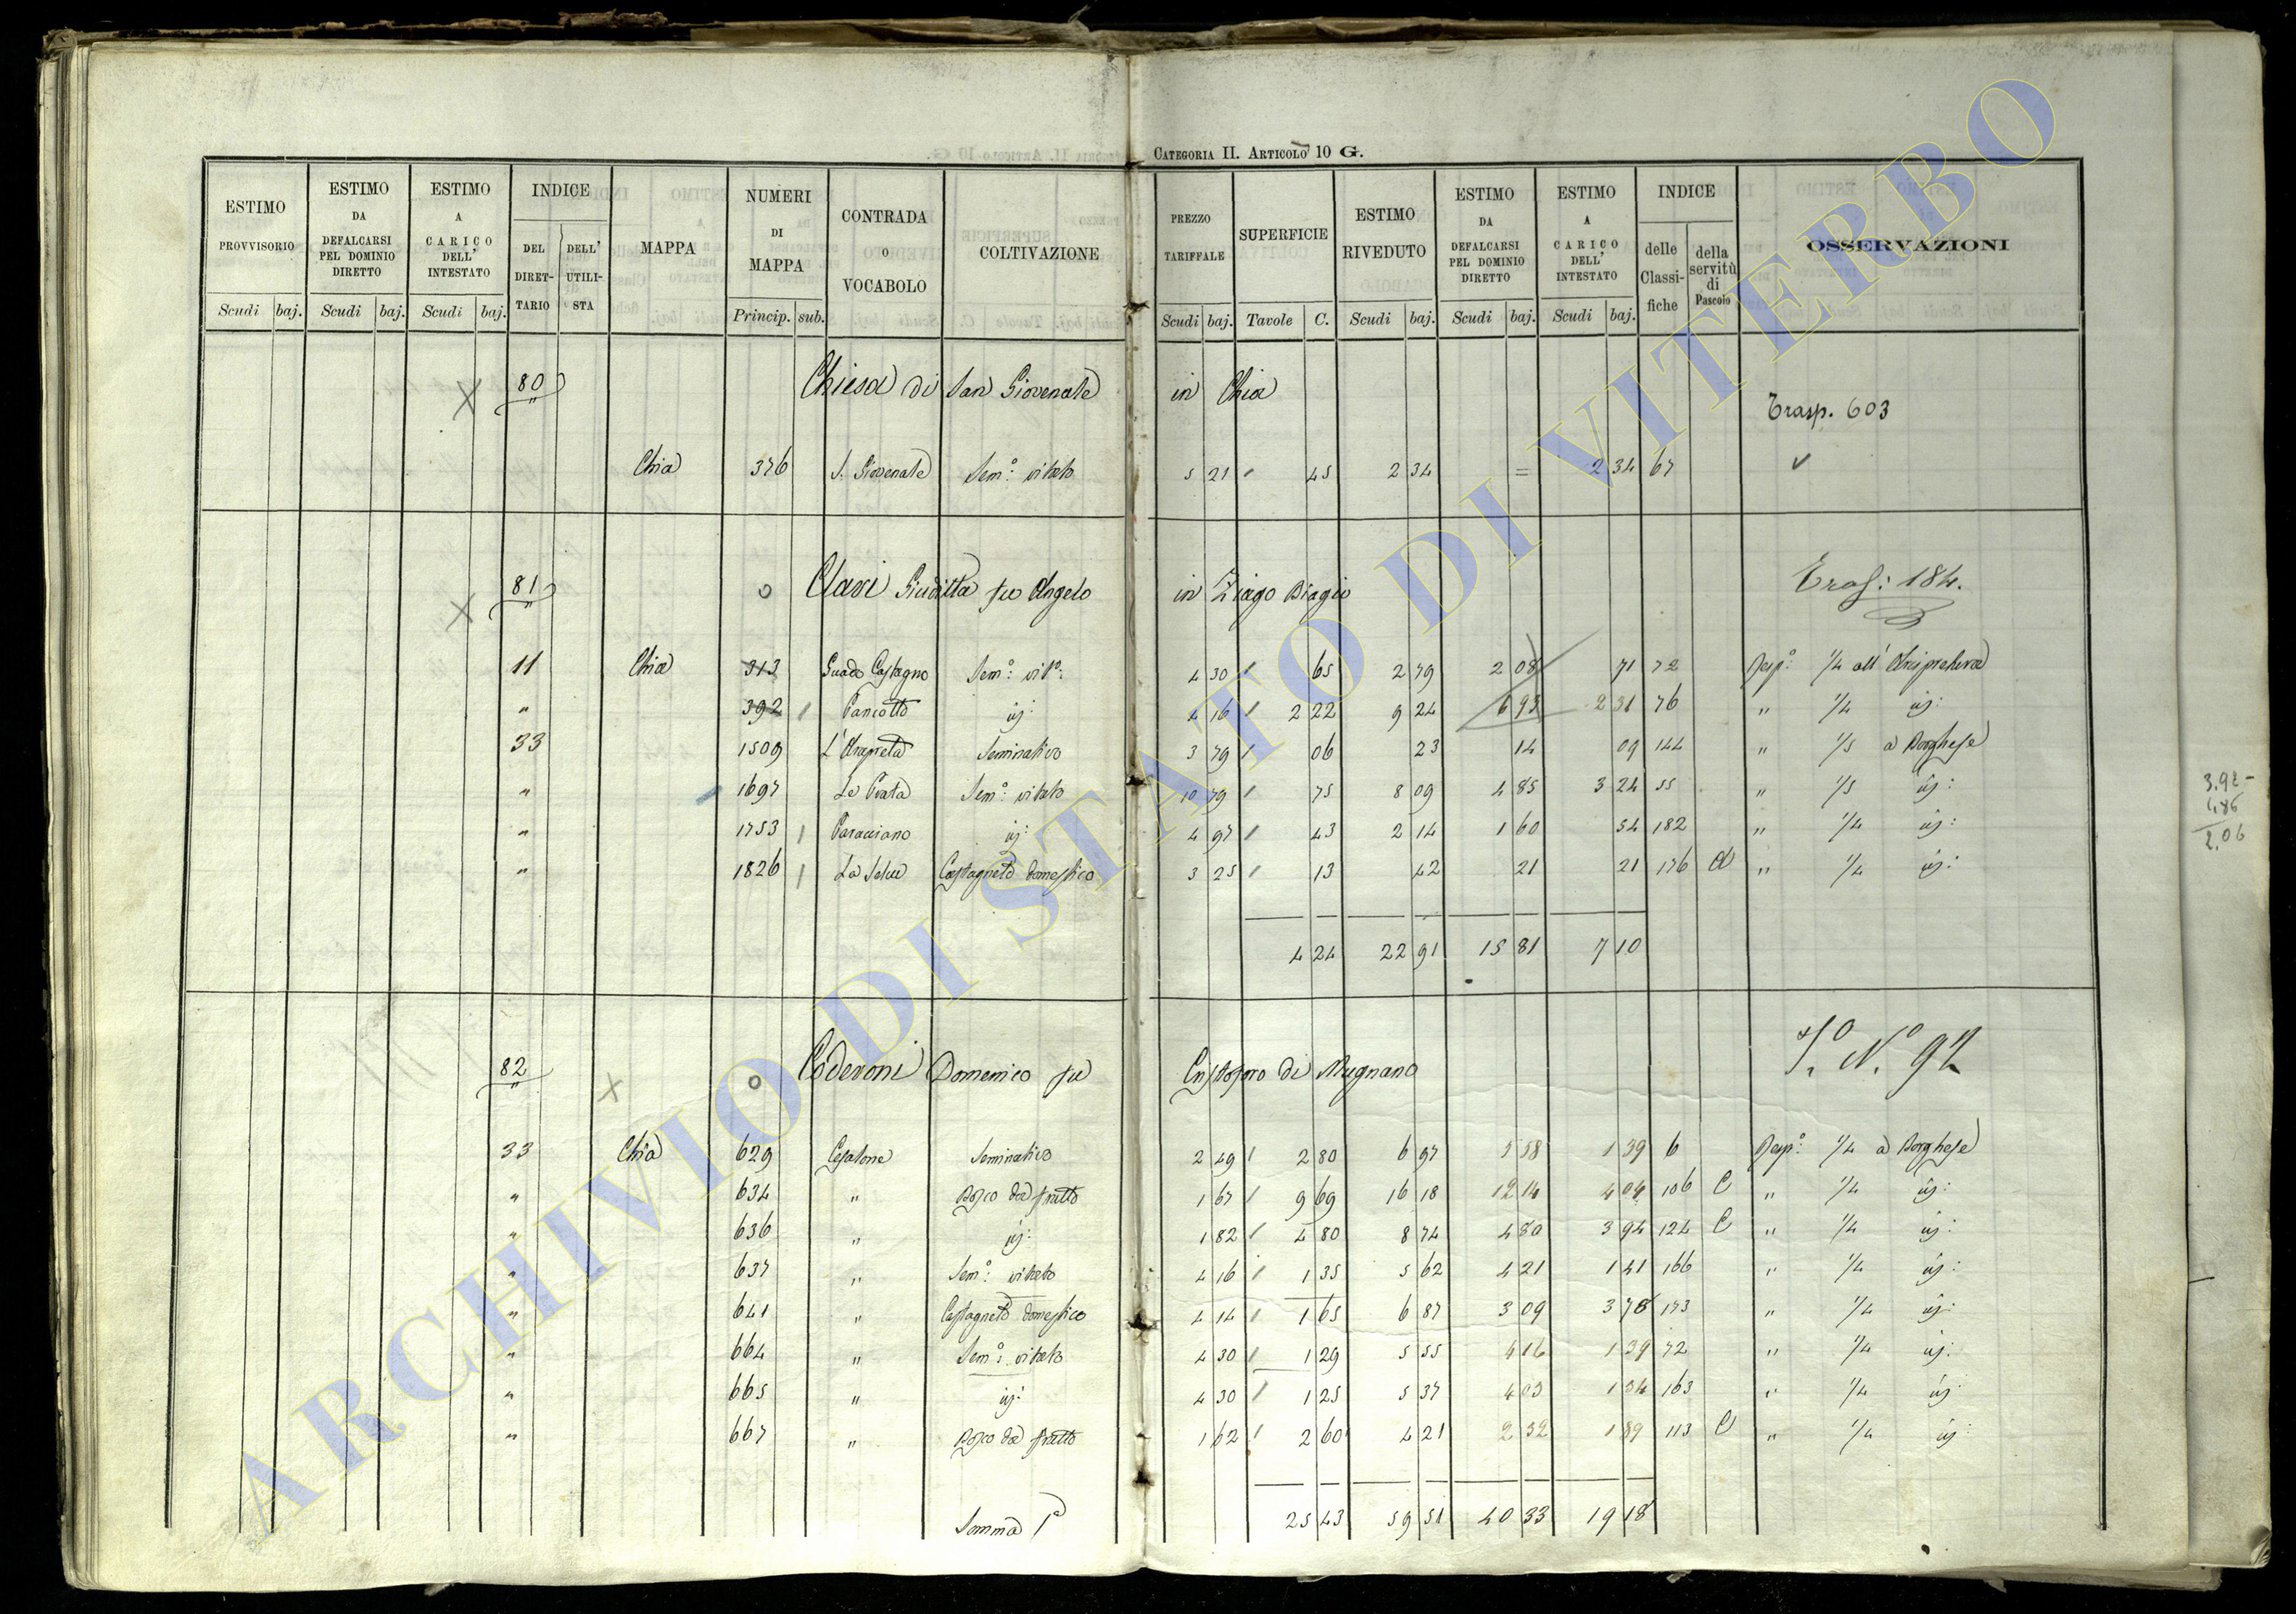 CATEGORIA II. ARTICOLO 10 G.
ESTIMO PROVVISORIO Scudi baj. ESTIMO DA DEFALCARSI PEL DOMINIO DIRETTO Scudi baj. ESTIMO A CARICO DELL' INTESTATO Scudi baj. INDICE DEL DIRET-TARIO DELL' UTILI-STA MAPPA NUMERI DI MAPPA Princip. sub. CONTRADA O VOCABOLO COLTIVAZIONE PREZZO TARIFFALE Scudi baj. SUPERFICIE Tavole C. ESTIMO RIVEDUTO Scudi baj. ESTIMO DA DEFALCARSI PEL DOMINIO DIRETTO Scudi baj. ESTIMO A CARICO DELL' INTESTATO Scudi baj. INDICE delle Classi-fiche della servitù di Pascolo OSSERVAZIONI
80 Chiesa di San Giovenale in Chia Trasp. 603
Chia 376 S. Giovenale Sem.o: vitato 5 21 45 2 34 = 2 34 67
81 Clavi Giuditta fu Angelo in Ziago Biagio Tras: 184.
11 Chia 313 Guado Castagno Sem.o: vit.o: 4 30 65 2 79 2 08 71 72 Risp.o: 1/4 all' Arcipretura
" 392 Pancotto id: 4 16 2 22 9 24 6 93 2 31 76 " 1/4 id:
33 1509 Seminativo 3 79 06 23 14 09 144 " 1/5 a Borghese
" 1697 Le Prata Sem.o: vitato 10 79 75 8 09 4 85 3 24 55 " 1/5 id:
" 1753 Paracciano id: 4 97 43 2 14 1 60 54 182 " 1/4 id:
" 1826 La Selva Castagneto domestico 3 25 13 42 21 21 176 " 1/4 id:
4 24 22 91 15 81 7 10
3.92
2.06
82 Coderoni Domenico fu Cristoforo di Mugnano N.o 92
33 Chia 629 Cesalone Seminativo 2 49 2 80 6 97 5 58 1 39 6 Risp.o: 1/4 a Borghese
" 634 " Bosco da frutto 1 67 9 69 16 18 12 14 4 04 106 C " 1/4 id:
" 636 " id: 1 82 4 80 8 74 4 80 3 94 124 C " 1/4 id:
" 637 " Sem.o: vitato 4 16 1 35 5 62 4 21 1 41 166 " 1/4 id:
" 641 " Castagneto domestico 4 14 1 65 6 87 3 09 3 78 173 " 1/4 id:
" 664 " Sem.o: vitato 4 30 1 29 5 55 4 16 1 39 72 " 1/4 id:
" 665 " id: 4 30 1 25 5 37 4 03 1 34 163 " 1/4 id:
" 667 " Bosco da frutto 1 62 2 60 4 21 2 32 1 89 113 C " 1/4 id:
Somma 25 43 59 51 40 33 19 18
ARCHIVIO DI STATO DI VITERBO